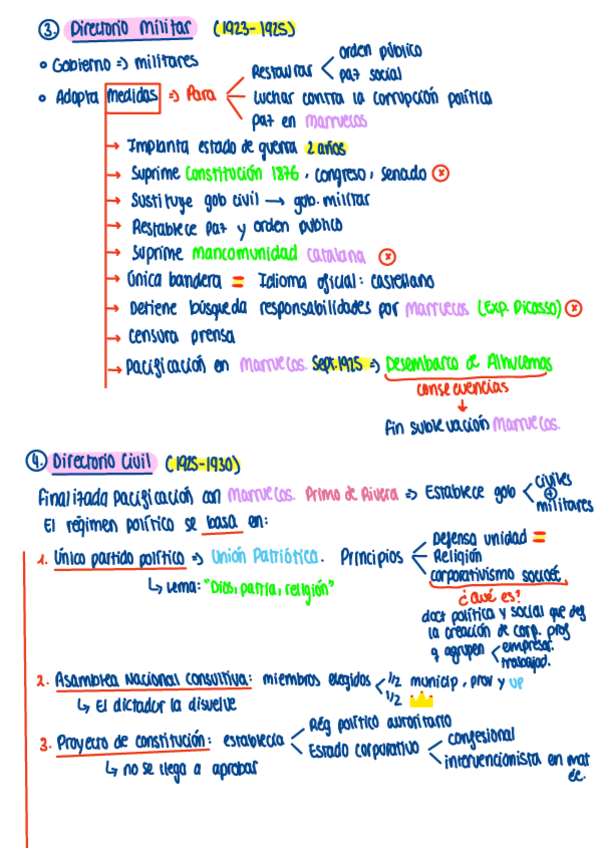 3. Directorio Militar (1923-1925)
• Gobierno => militares
• Adopta medidas => Para
Restaurar < orden público
paz social
Luchar contra la corrupción política
paz en Marruecos
→ Implanta estado de guerra 2 años
→ Suprime Constitución 1876, congreso, senado ⓧ
→ Sustituye gob civil → gob. militar
→ Restablece paz y orden público
→ Suprime mancomunidad catalana ⓧ
→ Única bandera = Idioma oficial: castellano
→ Detiene búsqueda responsabilidades por Marruecos (Exp. Picasso) ⓧ
→ Censura prensa
→ Pacificación en Marruecos. Sept.1925 => Desembarco de Alhucemas
consecuencias
↓
Fin sublevación Marruecos.
4. Directorio Civil (1925-1930)
Finalizada pacificación con Marruecos. Primo de Rivera => Establece gob < civiles
+
militares
El régimen político se basa en:
1. Único partido político => Unión Patriótica. Principios
Defensa unidad =
Religión
corporativismo socioec.
↳ Lema: "Dios, patria, religión"
¿Qué es?
doct política y social que def
la creación de corp. prof
q agrupen < empresar.
trabajad.
2. Asamblea Nacional Consultiva: miembros elegidos < 1/2 municip, prov y UP
1/2
↳ El dictador la disuelve
3. Proyecto de constitución: establecía
Rég político autoritario
Estado corporativo < confesional
intervencionista en mat
ec.
↳ no se llega a aprobar